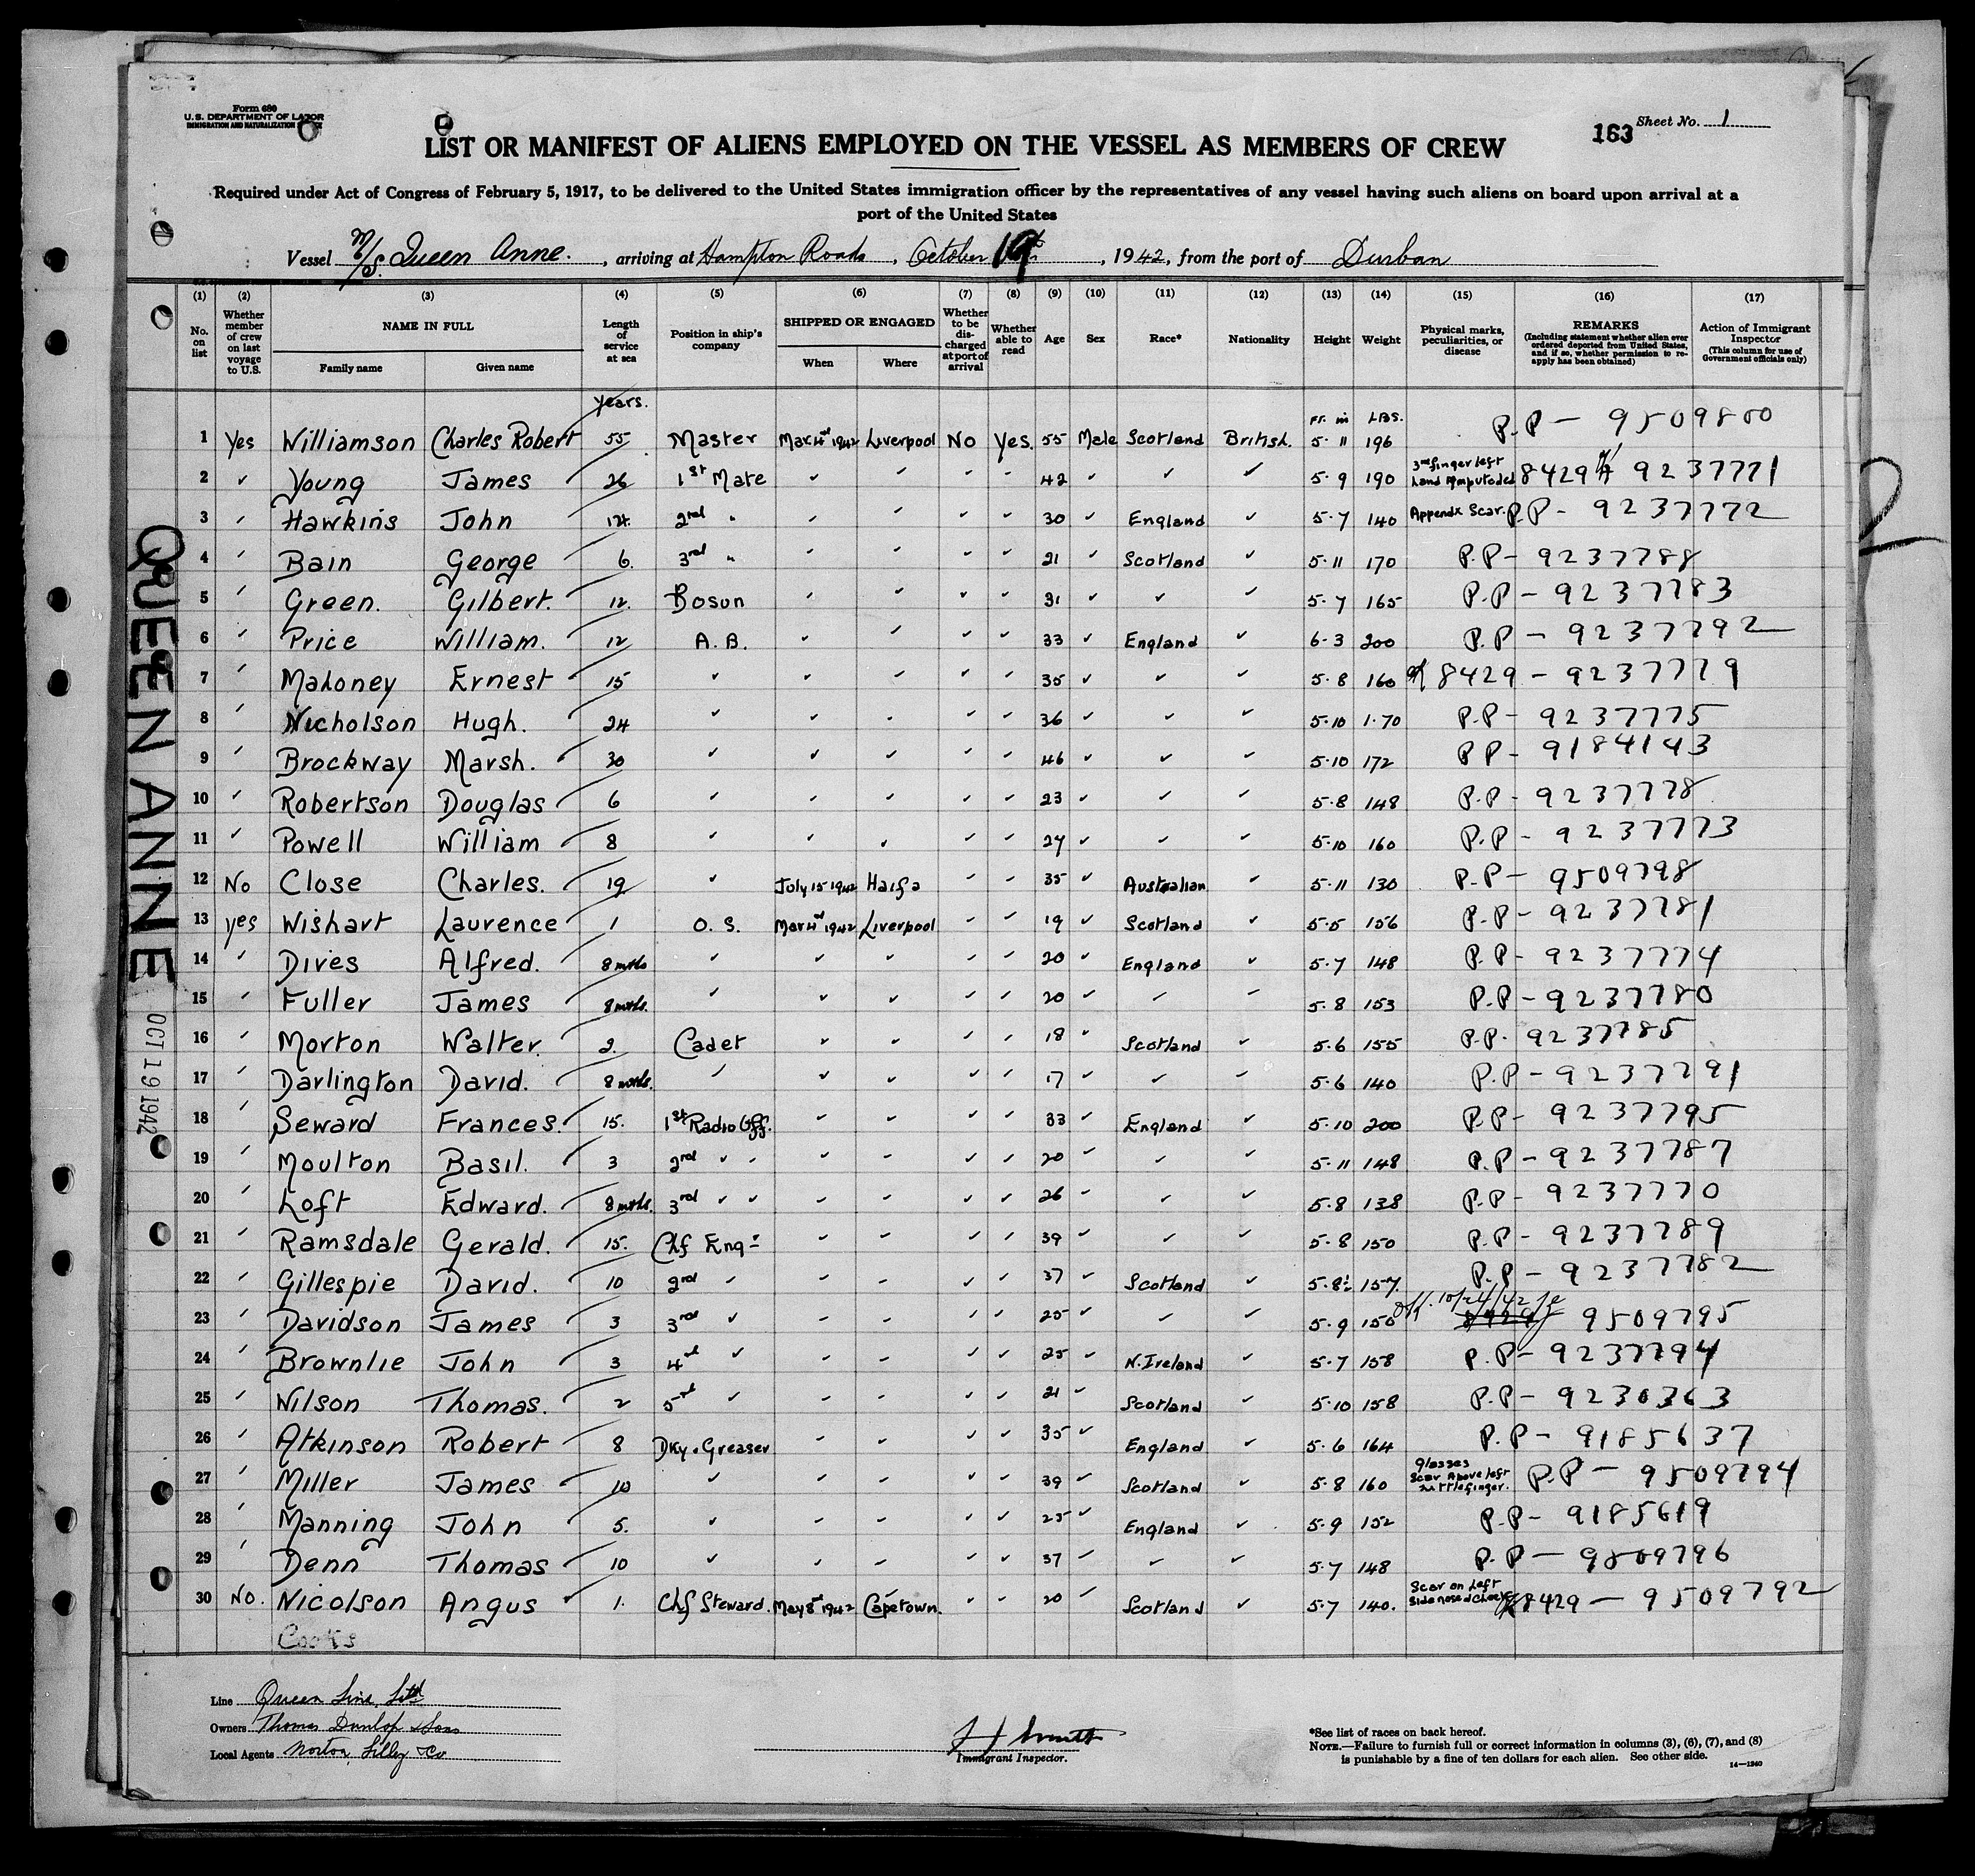 Form 680
U.S. DEPARTMENT OF LABOR
IMMIGRATION AND NATURALIZATION
Sheet No. 1
163
LIST OR MANIFEST OF ALIENS EMPLOYED ON THE VESSEL AS MEMBERS OF CREW
Required under Act of Congress of February 5, 1917, to be delivered to the United States immigration officer by the representatives of any vessel having such aliens on board upon arrival at a
port of the United States
Vessel M/S. Queen Anne. , arriving at Hampton Roads , October 19th , 1942, from the port of Durban
(1) (2) (3) (4) (5) (6) (7) (8) (9) (10) (11) (12) (13) (14) (15) (16) (17)
No. on list
Whether member of crew on last voyage to U.S.
NAME IN FULL
Family name Given name
Length of service at sea
Position in ship's company
SHIPPED OR ENGAGED
When Where
Whether to be discharged at port of arrival
Whether able to read
Age
Sex
Race*
Nationality
Height
Weight
Physical marks, peculiarities, or disease
REMARKS
(Including statement whether alien ever ordered deported from United States, and if so, whether permission to re-apply has been obtained)
Action of Immigrant Inspector
(This column for use of Government officials only)
years. FT. in LBS.
1 Yes Williamson Charles Robert 55 Master Mar 4th 1942 Liverpool No Yes. 55 Male Scotland British. 5·11 196 P.P - 9509800
2 ✓ Young James 26 1st Mate ✓ ✓ ✓ ✓ 42 ✓ ✓ ✓ 5·9 190 3rd finger left hand Amputated 8429 9237771
3 ✓ Hawkins John 14 2nd " ✓ ✓ ✓ ✓ 30 ✓ England ✓ 5·7 140 Appendx Scar. P.P - 9237772
4 ✓ Bain George 6. 3rd " ✓ ✓ ✓ ✓ 21 ✓ Scotland ✓ 5·11 170 P.P - 9237788
5 ✓ Green. Gilbert. 12. Bosun ✓ ✓ ✓ ✓ 31 ✓ ✓ ✓ 5·7 165 P.P - 9237783
6 ✓ Price William. 12 A.B. ✓ ✓ ✓ ✓ 33 ✓ England ✓ 6·3 200 P.P - 9237792
7 ✓ Mahoney Ernest 15 ✓ ✓ ✓ ✓ ✓ 35 ✓ ✓ ✓ 5·8 160 8429 - 9237779
8 ✓ Nicholson Hugh. 24 ✓ ✓ ✓ ✓ ✓ 36 ✓ ✓ ✓ 5·10 1·70 P.P - 9237775
9 ✓ Brockway Marsh. 30 ✓ ✓ ✓ ✓ ✓ 46 ✓ ✓ ✓ 5·10 172 P P - 9184143
10 ✓ Robertson Douglas 6 ✓ ✓ ✓ ✓ ✓ 23 ✓ ✓ ✓ 5·8 148 P.P - 9237778
11 ✓ Powell William 8 ✓ ✓ ✓ ✓ ✓ 27 ✓ ✓ ✓ 5·10 160 P.P - 9237773
12 No Close Charles. 19 ✓ July 15 1942 Haifa ✓ ✓ 35 ✓ Australian ✓ 5·11 130 P.P - 9509798
13 yes Wishart Laurence 1 O.S. Mar 4th 1942 Liverpool ✓ ✓ 19 ✓ Scotland ✓ 5·5 156 P.P - 9237781
14 ✓ Dives Alfred. 8 mths ✓ ✓ ✓ ✓ ✓ 20 ✓ England ✓ 5·7 148 P.P - 9237774
15 ✓ Fuller James 8 mths. ✓ ✓ ✓ ✓ ✓ 20 ✓ ✓ ✓ 5·8 153 P.P - 9237780
16 ✓ Morton Walter. 2. Cadet ✓ ✓ ✓ ✓ 18 ✓ Scotland ✓ 5·6 155 P.P. 9237785
17 ✓ Darlington David. 8 mths. ✓ ✓ ✓ ✓ ✓ 17 ✓ ✓ ✓ 5·6 140 P.P - 9237791
18 ✓ Seward Frances. 15. 1st Radio Off. ✓ ✓ ✓ ✓ 33 ✓ England ✓ 5·10 200 P.P - 9237795
19 ✓ Moulton Basil. 3 2nd ✓ ✓ ✓ ✓ ✓ ✓ 20 ✓ ✓ ✓ 5·11 148 P.P - 9237787
20 ✓ Loft Edward. 8 mths. 3rd ✓ ✓ ✓ ✓ ✓ ✓ 26 ✓ ✓ ✓ 5·8 138 P.P - 9237770
21 ✓ Ramsdale Gerald. 15. Chf Engr ✓ ✓ ✓ ✓ 39 ✓ ✓ ✓ 5·8 150 P.P - 9237789
22 ✓ Gillespie David. 10 2nd ✓ ✓ ✓ ✓ ✓ 37 ✓ Scotland ✓ 5·8½ 157. P.P - 9237782
23 ✓ Davidson James 3 3rd ✓ ✓ ✓ ✓ ✓ 25 ✓ ✓ ✓ 5·9 150 Off. 10/24/42 8429 9509795
24 ✓ Brownlie John 3 4th ✓ ✓ ✓ ✓ ✓ 25 ✓ N. Ireland ✓ 5·7 158 P.P - 9237794
25 ✓ Wilson Thomas. 2 5th ✓ ✓ ✓ ✓ ✓ 21 ✓ Scotland ✓ 5·10 158 P.P - 9230363
26 ✓ Atkinson Robert 8 Dky. Greaser ✓ ✓ ✓ ✓ 35 ✓ England ✓ 5·6 164 P.P - 9185637
27 ✓ Miller James 10 ✓ ✓ ✓ ✓ ✓ 39 ✓ Scotland ✓ 5·8 160 glasses Scar Above left little finger. P.P - 9509794
28 ✓ Manning John 5. ✓ ✓ ✓ ✓ ✓ 25 ✓ England ✓ 5·9 152 P.P - 9185619
29 ✓ Denn Thomas 10 ✓ ✓ ✓ ✓ ✓ 37 ✓ ✓ ✓ 5·7 148 P.P - 9509796
30 No. Nicolson Angus 1. Chf Steward. May 8th 1942 Capetown. ✓ ✓ 20 ✓ Scotland ✓ 5·7 140. Scar on Left Side nose & Cheek 8429 - 9509792
Cooks
QUEEN ANNE
OCT 19 1942
Line Queen Line, Ltd
Owners Thomas Dunlop & Sons
Local Agents Norton, Lilly & Co
Immigrant Inspector.
*See list of races on back hereof.
NOTE.—Failure to furnish full or correct information in columns (3), (6), (7), and (8)
is punishable by a fine of ten dollars for each alien. See other side.
14—1240